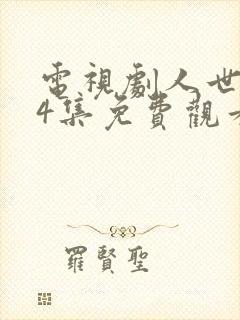 電視劇人世
4集免費觀
羅賢聖